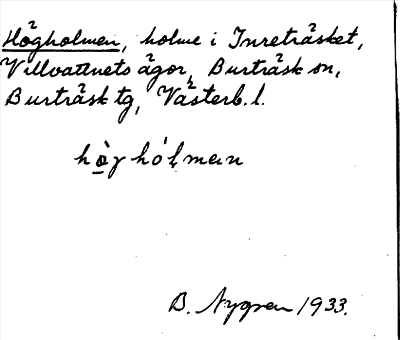 Högholmen, holme i Inreträsket,
Villvattnets ägor, Burträsk sn,
Burträsk tg, Västerb. l.
B. Nygren 1933.